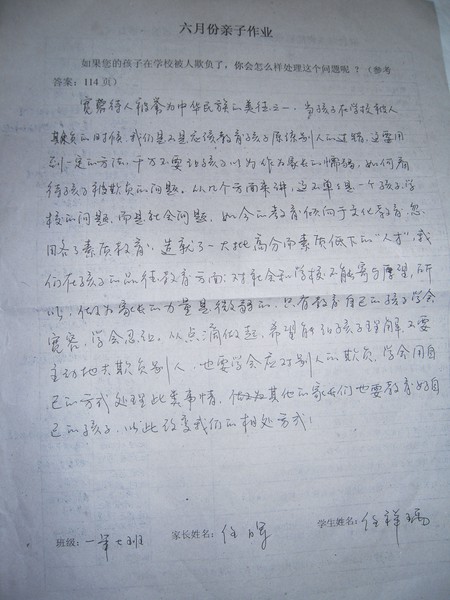 六月份亲子作业
如果您的孩子在学校被人欺负了，你会怎么样处理这个问题呢？（参考
答案：114页）
宽容待人被誉为中华民族的美德之一，当孩子在学校被人
欺负的时候，我们是不是应该教育孩子原谅别人的过错，这要用
到一定的方法，千万不要让孩子以为作为家长的懦弱，如何看
待孩子被欺负的问题。从几个方面来讲，这不单单是一个孩子，学
校的问题，而是社会问题，如今的教育倾向于文化教育，忽
略了素质教育，造就了一大批高分而素质低下的“人才”，我
们在孩子的品德教育方面，对社会和学校不能寄与厚望，所
以，作为家长的力量是微弱的，只有教育自己的孩子学会
宽容，学会忍让，从点滴做起，希望能让孩子理解，不要
主动地去欺负别人，也要学会应对别人的欺负，学会用自
己的方式处理此类事情，作为其他的家长们也要教育好自
己的孩子，以此改变我们的相处方式！
班级：一年七班 家长姓名：任 学生姓名：任祥瑞